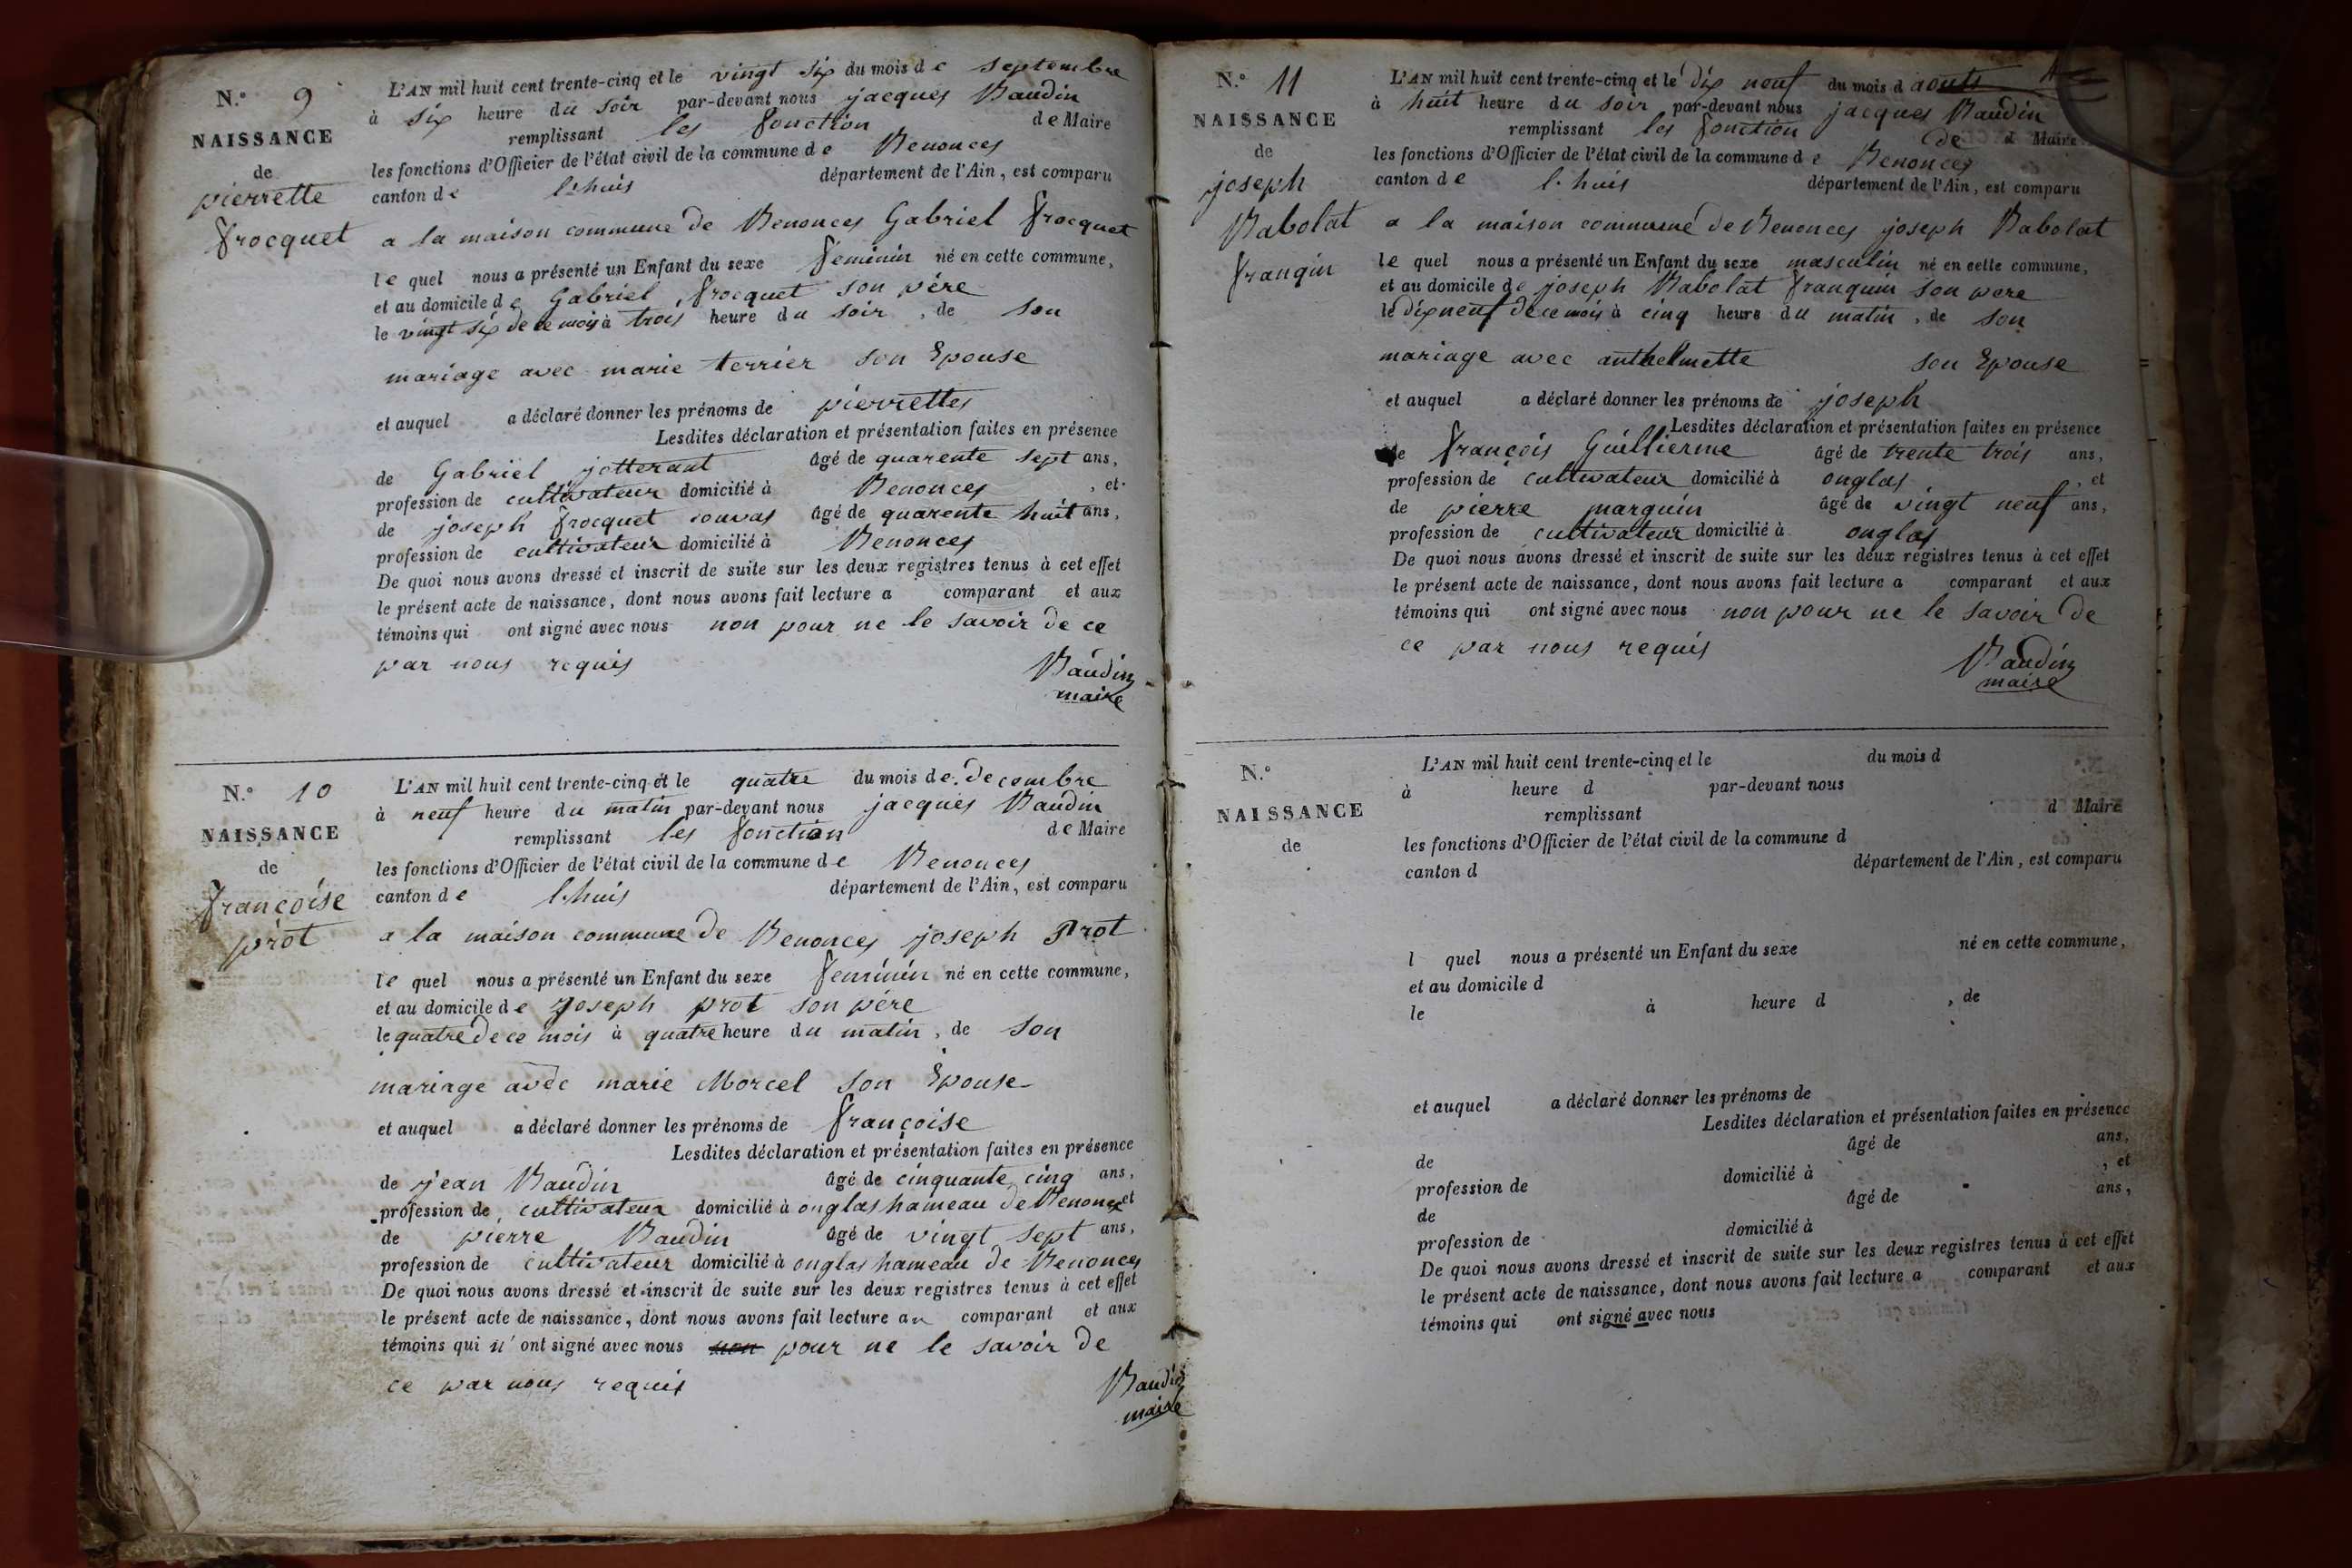 N.° 9
NAISSANCE
de
pierrette
frocquet
L'AN mil huit cent trente-cinq et le vingt six du mois de septembre
à six heure du soir par-devant nous jacques Baudin
remplissant les fonction de Maire
les fonctions d'Officier de l'état civil de la commune de Benonces
canton de l'huis département de l'Ain, est comparu
a la maison commune de Benonces Gabriel frocquet
le quel nous a présenté un Enfant du sexe féminin né en cette commune,
et au domicile de Gabriel frocquet son père
le vingt six de ce mois à trois heure du soir, de son
mariage avec marie terrier son Epouse
et auquel a déclaré donner les prénoms de pierrettes
Lesdites déclaration et présentation faites en présence
de Gabriel jotterant âgé de quarente sept ans,
profession de cultivateur domicilié à Benonces, et
de joseph frocquet couvas âgé de quarente huit ans,
profession de cultivateur domicilié à Benonces
De quoi nous avons dressé et inscrit de suite sur les deux registres tenus à cet effet
le présent acte de naissance, dont nous avons fait lecture a comparant et aux
témoins qui ont signé avec nous non pour ne le savoir de ce
par nous requis
Baudin
maire
N.° 10
NAISSANCE
de
françoise
prot
L'AN mil huit cent trente-cinq et le quatre du mois de decembre
à neuf heure du matin par-devant nous jacques Baudin
remplissant les fonction de Maire
les fonctions d'Officier de l'état civil de la commune de Benonces
canton de l'huis département de l'Ain, est comparu
a la maison commune de Benonces joseph Prot
le quel nous a présenté un Enfant du sexe feminin né en cette commune,
et au domicile de joseph prot son père
le quatre de ce mois à quatre heure du matin, de son
mariage avec marie Morcel son Epouse
et auquel a déclaré donner les prénoms de françoise
Lesdites déclaration et présentation faites en présence
de jean Baudin âgé de cinquante cinq ans,
profession de cultivateur domicilié à onglas hameau de Benonces et
de pierre Baudin âgé de vingt sept ans,
profession de cultivateur domicilié à onglas hameau de Benonces
De quoi nous avons dressé et inscrit de suite sur les deux registres tenus à cet effet
le présent acte de naissance, dont nous avons fait lecture au comparant et aux
témoins qui n'ont signé avec nous non pour ne le savoir de
ce par nous requis
Baudin
maire
N.° 11
NAISSANCE
de
joseph
Babolat
franqin
L'AN mil huit cent trente-cinq et le dix neuf du mois d aouts
à huit heure du soir par-devant nous jacques Baudin
remplissant les fonction de d Maire
les fonctions d'Officier de l'état civil de la commune de Benonces
canton de l'huis département de l'Ain, est comparu
a la maison commune de Benonces joseph Babolat
le quel nous a présenté un Enfant du sexe masculin né en cette commune,
et au domicile de joseph Babolat franquin son pere
le dix neuf de ce mois à cinq heure du matin, de son
mariage avec anthelmette son Epouse
et auquel a déclaré donner les prénoms de joseph
Lesdites déclaration et présentation faites en présence
de françois Guillierme âgé de trente trois ans,
profession de cultivateur domicilié à onglas, et
de pierre marquin âgé de vingt neuf ans,
profession de cultivateur domicilié à onglas
De quoi nous avons dressé et inscrit de suite sur les deux registres tenus à cet effet
le présent acte de naissance, dont nous avons fait lecture a comparant et aux
témoins qui ont signé avec nous non pour ne le savoir de
ce par nous requis
Baudin
maire
N.°
NAISSANCE
de
L'AN mil huit cent trente-cinq et le du mois d
à heure d par-devant nous
remplissant d Maire
les fonctions d'Officier de l'état civil de la commune d
canton d département de l'Ain, est comparu
l quel nous a présenté un Enfant du sexe né en cette commune,
et au domicile d
le à heure d, de
et auquel a déclaré donner les prénoms de
Lesdites déclaration et présentation faites en présence
de âgé de ans,
profession de domicilié à, et
de âgé de ans,
profession de domicilié à
De quoi nous avons dressé et inscrit de suite sur les deux registres tenus à cet effet
le présent acte de naissance, dont nous avons fait lecture a comparant et aux
témoins qui ont signé avec nous